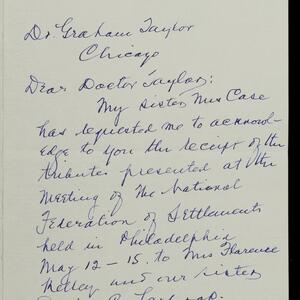 Dr. Graham Taylor
Chicago
Dear Doctor Taylor:
My sister Mrs Case
has requested me to acknowl-
edge to you the receipt of the
tributes presented at the
meeting of The National
Federation of Settlements
held in Philadelphia
May 12-15. to Mrs Florence
Kelley and our sister